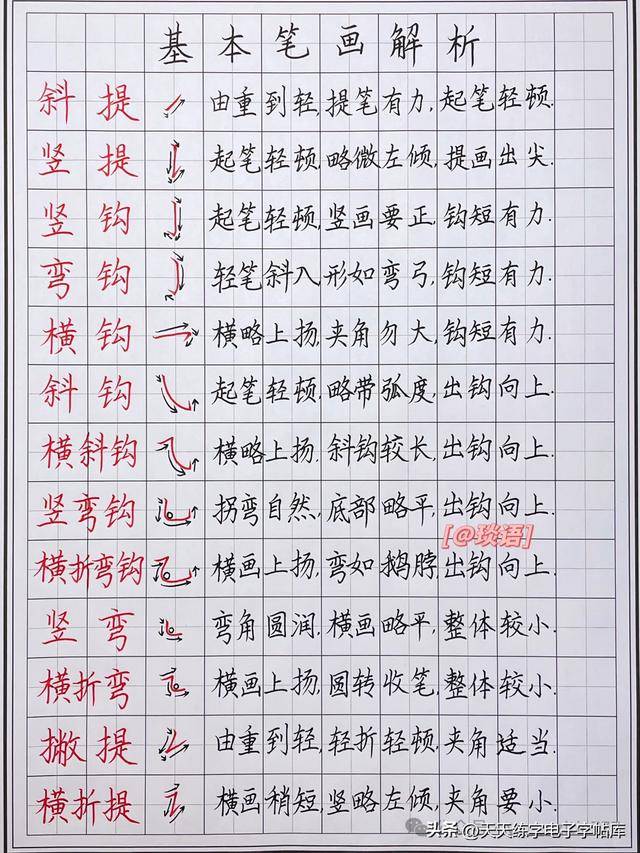 基本笔画解析
斜提 由重到轻,提笔有力,起笔轻顿.
竖提 起笔轻顿,略微左倾,提画出尖.
竖钩 起笔轻顿,竖画要正,钩短有力.
弯钩 轻笔斜入,形如弯弓,钩短有力.
横钩 横略上扬,夹角勿大,钩短有力.
斜钩 起笔轻顿,略带弧度,出钩向上.
横斜钩 横略上扬,斜钩较长,出钩向上.
竖弯钩 拐弯自然,底部略平,出钩向上.
[@琰语]
横折弯钩 横画上扬,弯如鹅脖,出钩向上.
竖弯 弯角圆润,横画略平,整体较小.
横折弯 横画上扬,圆转收笔,整体较小.
撇提 由重到轻,轻折轻顿,夹角适当.
横折提 横画稍短,竖略左倾,夹角要小.
头条 @天天练字电子字帖库